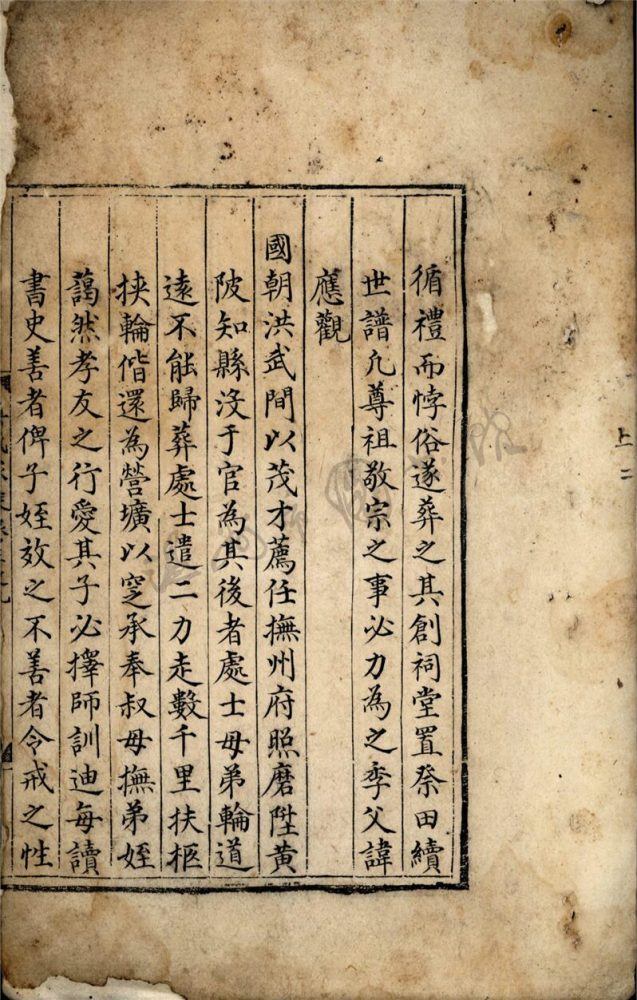 循禮而悖俗遂葬之其創祠堂置祭田續
世譜凢尊祖敬宗之事必力為之季父諱
應觀
國朝洪武間以茂才薦任撫州府照磨陞黄
陂知縣沒于官為其後者處士母弟輪道
逺不能歸葬處士遣二力走數千里扶柩
挟輪偕還為營壙以窆承奉叔母撫弟姪
藹然孝友之行愛其子必擇師訓迪每讀
書史善者俾子姪效之不善者令戒之性
上二